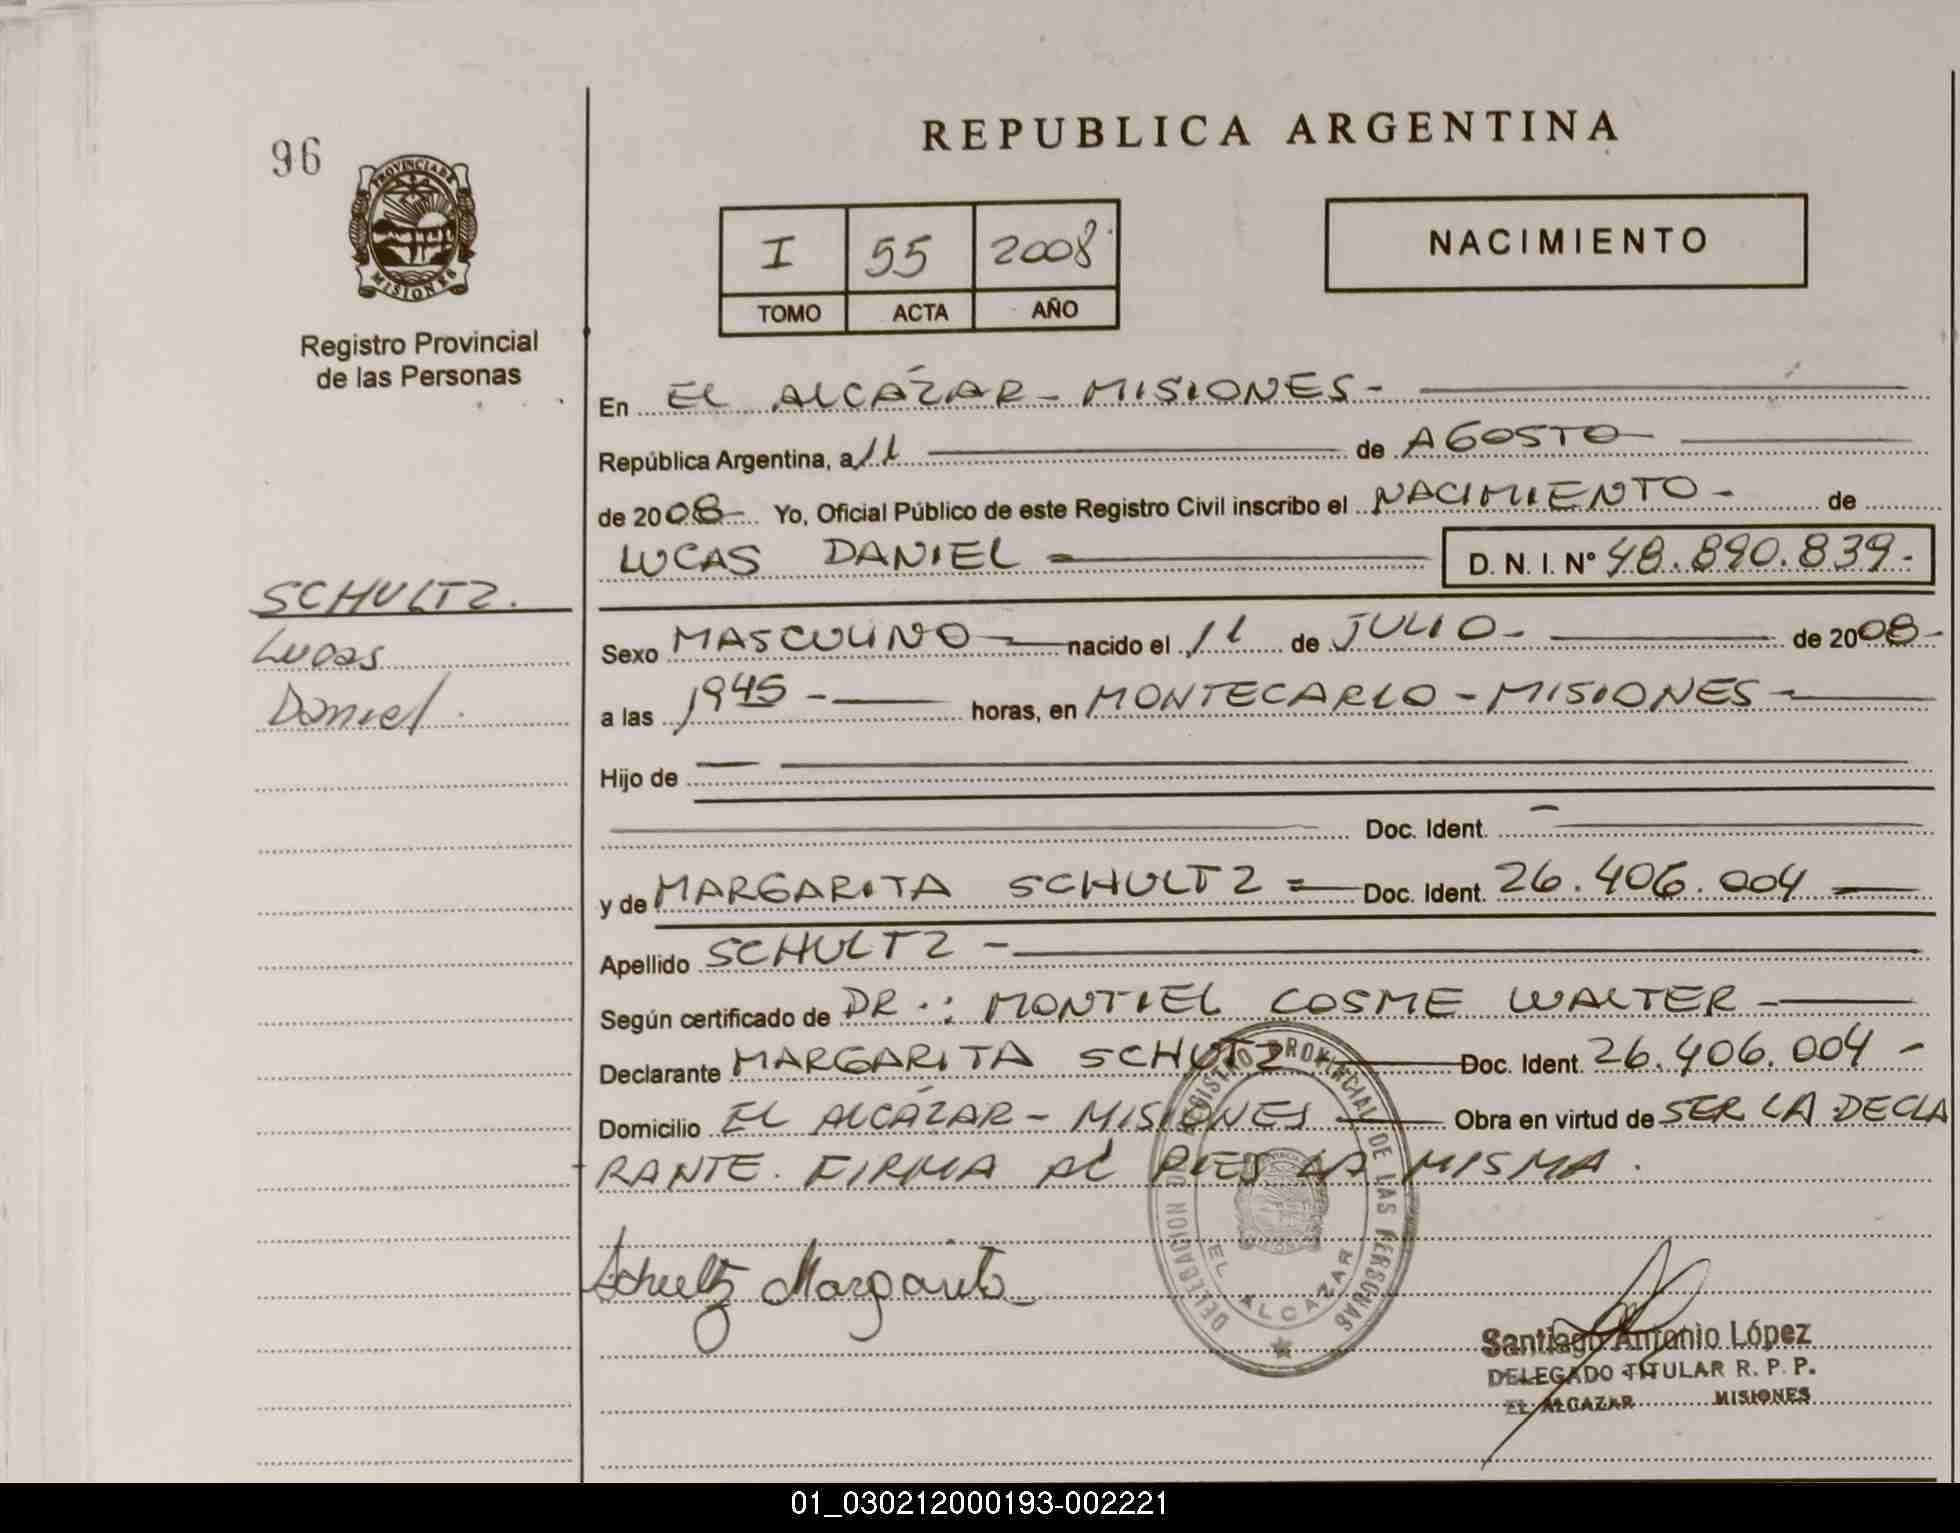 REPUBLICA ARGENTINA
96
PROVINCIA DE MISIONES
Registro Provincial
de las Personas
I 55 2008
TOMO ACTA AÑO
NACIMIENTO
En EL ALCÁZAR - MISIONES -
República Argentina, a 11 de AGOSTO
de 2008 - Yo, Oficial Público de este Registro Civil inscribo el NACIMIENTO - de
LUCAS DANIEL D. N. I. Nº 48.890.839.-
SCHULTZ.
Lucas
Daniel.
Sexo MASCULINO nacido el 11 de JULIO - de 2008 -
a las 1945 - horas, en MONTECARLO - MISIONES -
Hijo de
Doc. Ident. -
y de MARGARITA SCHULTZ = Doc. Ident. 26.406.004
Apellido SCHULTZ -
Según certificado de DR.: MONTIEL COSME WALTER -
Declarante MARGARITA SCHUTZ - Doc. Ident. 26.406.004 -
Domicilio EL ALCÁZAR - MISIONES Obra en virtud de SER LA DECLA
RANTE. FIRMA AL PIES LA MISMA.
Schultz Margarita
DELEGACION DE REGISTRO PROVINCIAL DE LAS PERSONAS
EL ALCAZAR
Santiago Antonio López
DELEGADO TITULAR R. P. P.
EL ALCAZAR MISIONES
01_030212000193-002221